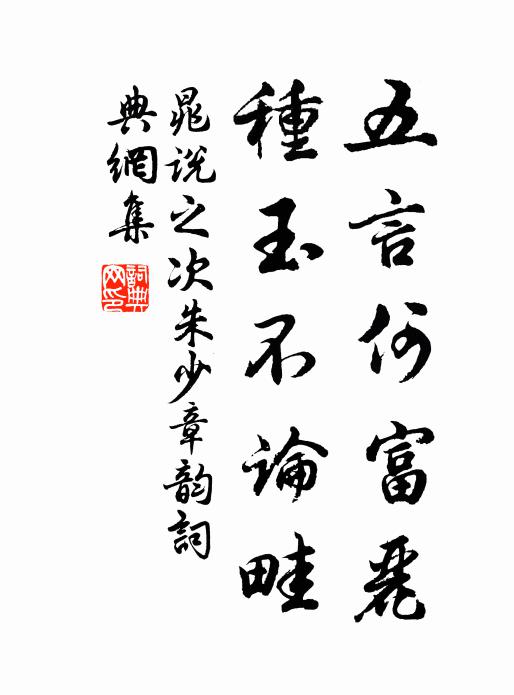 五言何富麗
種玉不論畦
晁說之次朱少章韵詞
典網集
詞典網印